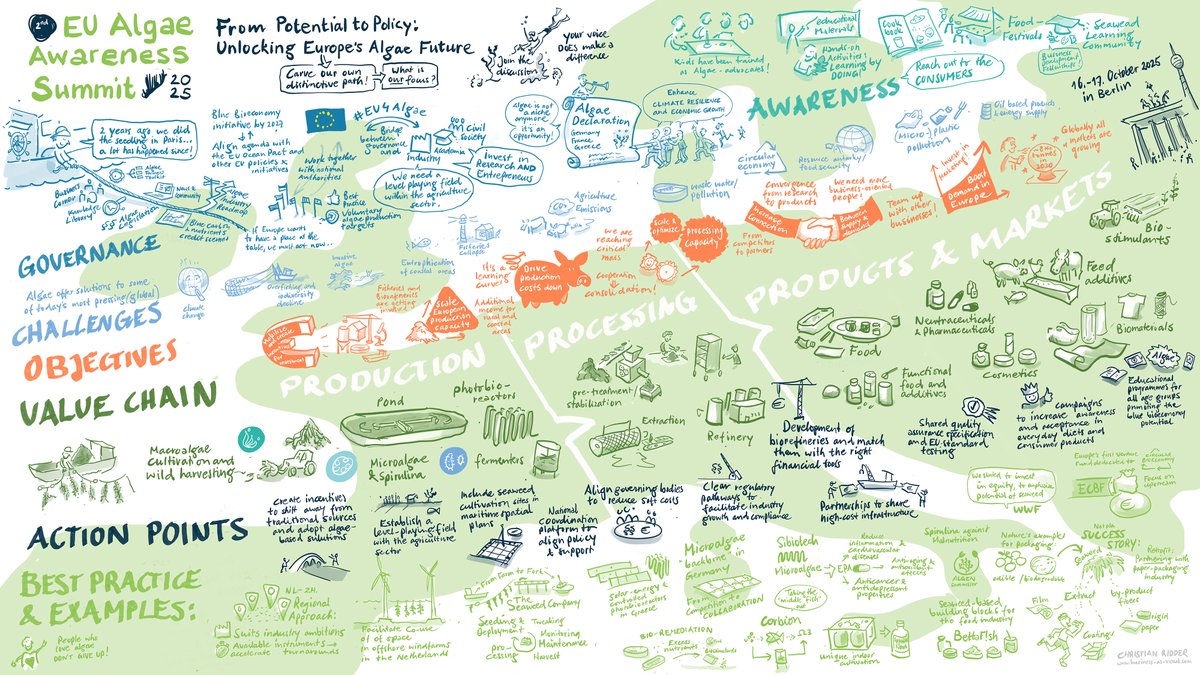 2nd EU Algae
Awareness
Summit 2025
From Potential to Policy:
Unlocking Europe's Algae Future
Carve our own
distinctive path!
What is
our focus?
Join the
discussion
your voice
DOES make a
difference
Kids have been trained
as Algae-advocates!
educational
Materials
Hands-on
Activities
Learning by
DOING!
Cook
book
Food-
Festivals
Seaweed
Learning
Community
Business
Development
Fellowships
Reach out to the
CONSUMERS
AWARENESS
16.-17. October 2025
in Berlin
2 years ago we did
the seeding in Paris...
a lot has happened since!
Business
Corner
Knowledge
Library
Algae
Legislation
NGOs &
Community
Algae Industry
Roadmap
Blue carbon
& nutrients
credit scheme!
Blue Bioeconomy
initiative by 2027
Align agenda with
the EU Ocean Pact and
other EU policies &
initiatives
If Europe wants
to have a place at the
table, we must act now...
#EU4Algae
Bridge
between
Governance
and
Industry
Academia
Civil
Society
Work together
with national
Authorities
Best
Practice
Voluntary
algae production
targets
We need a
level playing field
within the agriculture
sector.
Invest in
Research AND
Entrepreneurs
Algae is not
a niche
anymore
it's an
opportunity!
Algae
Declaration
Germany
France
Greece
Enhance
CLIMATE RESILIENCE
AND ECONOMIC GROWTH
GOVERNANCE
Algae offer solutions to some
of today's most pressing (global)
CHALLENGES
Climate
change
Overfishing and
biodiversity
decline
Invasive
algae
Eutrophication
of coastal areas
Fisheries
Collapse
Agriculture
Emissions
waste water/
pollution
circular
economy
Resource autority/
food security
(Micro-) Plastic
Pollution
Oil based products
& energy supply
OBJECTIVES
Fisheries and
Bioregineries
are getting
Scale
European
production
capacity
It's a
learning
curve!
Additional
income for
rural and
coastal
areas
Drive
production
costs down
We are
reaching
critical
mass
Cooperation
consolidation!
Scale &
optimize
processing
Capacity
Increase
Connection
Convergence
from research
to products
From
competitors
to partners
We need more
business-oriented
people!
Between
Supply &
demand
Team up
with other
businesses!
Invest in
marketing!
Boost
Demand in
Europe
Globally all
markets are
growing
VALUE CHAIN
PRODUCTION
PROCESSING
PRODUCTS & MARKETS
Macroalgae
Cultivation and
wild harvesting
Pond
photobio-
reactors
Microalgae
& Spirulina
fermenters
pre-treatment/
stabilization
Extraction
Refinery
Food
Functional
food and
additives
Neutraceuticals
& Pharmaceuticals
Cosmetics
Feed
additives
Bio-
stimulants
Biomaterials
ACTION POINTS
Create incentives
to shift away from
traditional sources
and adopt algae-
based solutions
Establish a
level-playing field
with the agriculture
sector
Include seaweed
cultivation sites in
maritime spatial
plans
National
coordination
platform to
align policy
& support
Align governing bodies
to reduce soft costs
Clear regulatory
pathways to
facilitate industry
growth and compliance
Development of
biorefineries and match
them with the right
financial tools
Partnerships to share
high-cost infrastructure
Shared quality
assurance specification
and EU-standard
testing
campaigns
to increase awareness
and acceptance in
everyday diets and
consumer products
Algae
Educational
programmes for
all age groups
promoting the
blue bioeconomy
potential
BEST PRACTICE
& EXAMPLES:
People who
love algae
DON'T GIVE UP!
NL-ZH.
Regional
Approach:
Suits industry ambitions
Available instruments →
accelerate turnarounds
Facilitate Co-use
of of space in
offshore windfarms
in the Netherlands
From Farm to Fork
The
Seaweed Company
Seeding &
Deployment
pro-
cessing
Tweaking
Monitoring
Maintenance
Harvest
Solar-energy
controlled
photobioreactors
in Greece
BIO-REMEDIATION
Excess
nutrients
Biostimulants
Microalgae
backbone in
Germany
From
Competition to
COLLABORATION
Sibiotech
Microalgae
EPA
Reduce
inflammation &
cardiovascular
diseases
Anti-aging &
antimicrobial
Anticancer &
antidepressant
properties
Taking the
"middle fish" out
Corbion
unique indoor
cultivation
Spirulina against
Malnutrition
Seaweed-based
building blocks for
the food industry
BettaF!sh
We started to invest
in equity, to emphasize
potential of seaweed
WWF
Europe's first Venture
Fund dedicated to
circular bioeconomy
ECBF
Focus on
upstream
Nature's example
for packaging
edible / biodegradable
Notpla
SUCCESS
STORY:
Seaweed
Film
Extract
Coating
by-product
trees
rigid
paper
Retrofit:
Partnering with
paper-packaging
industry
CHRISTIAN RIDDER
www.business-as-visual.com